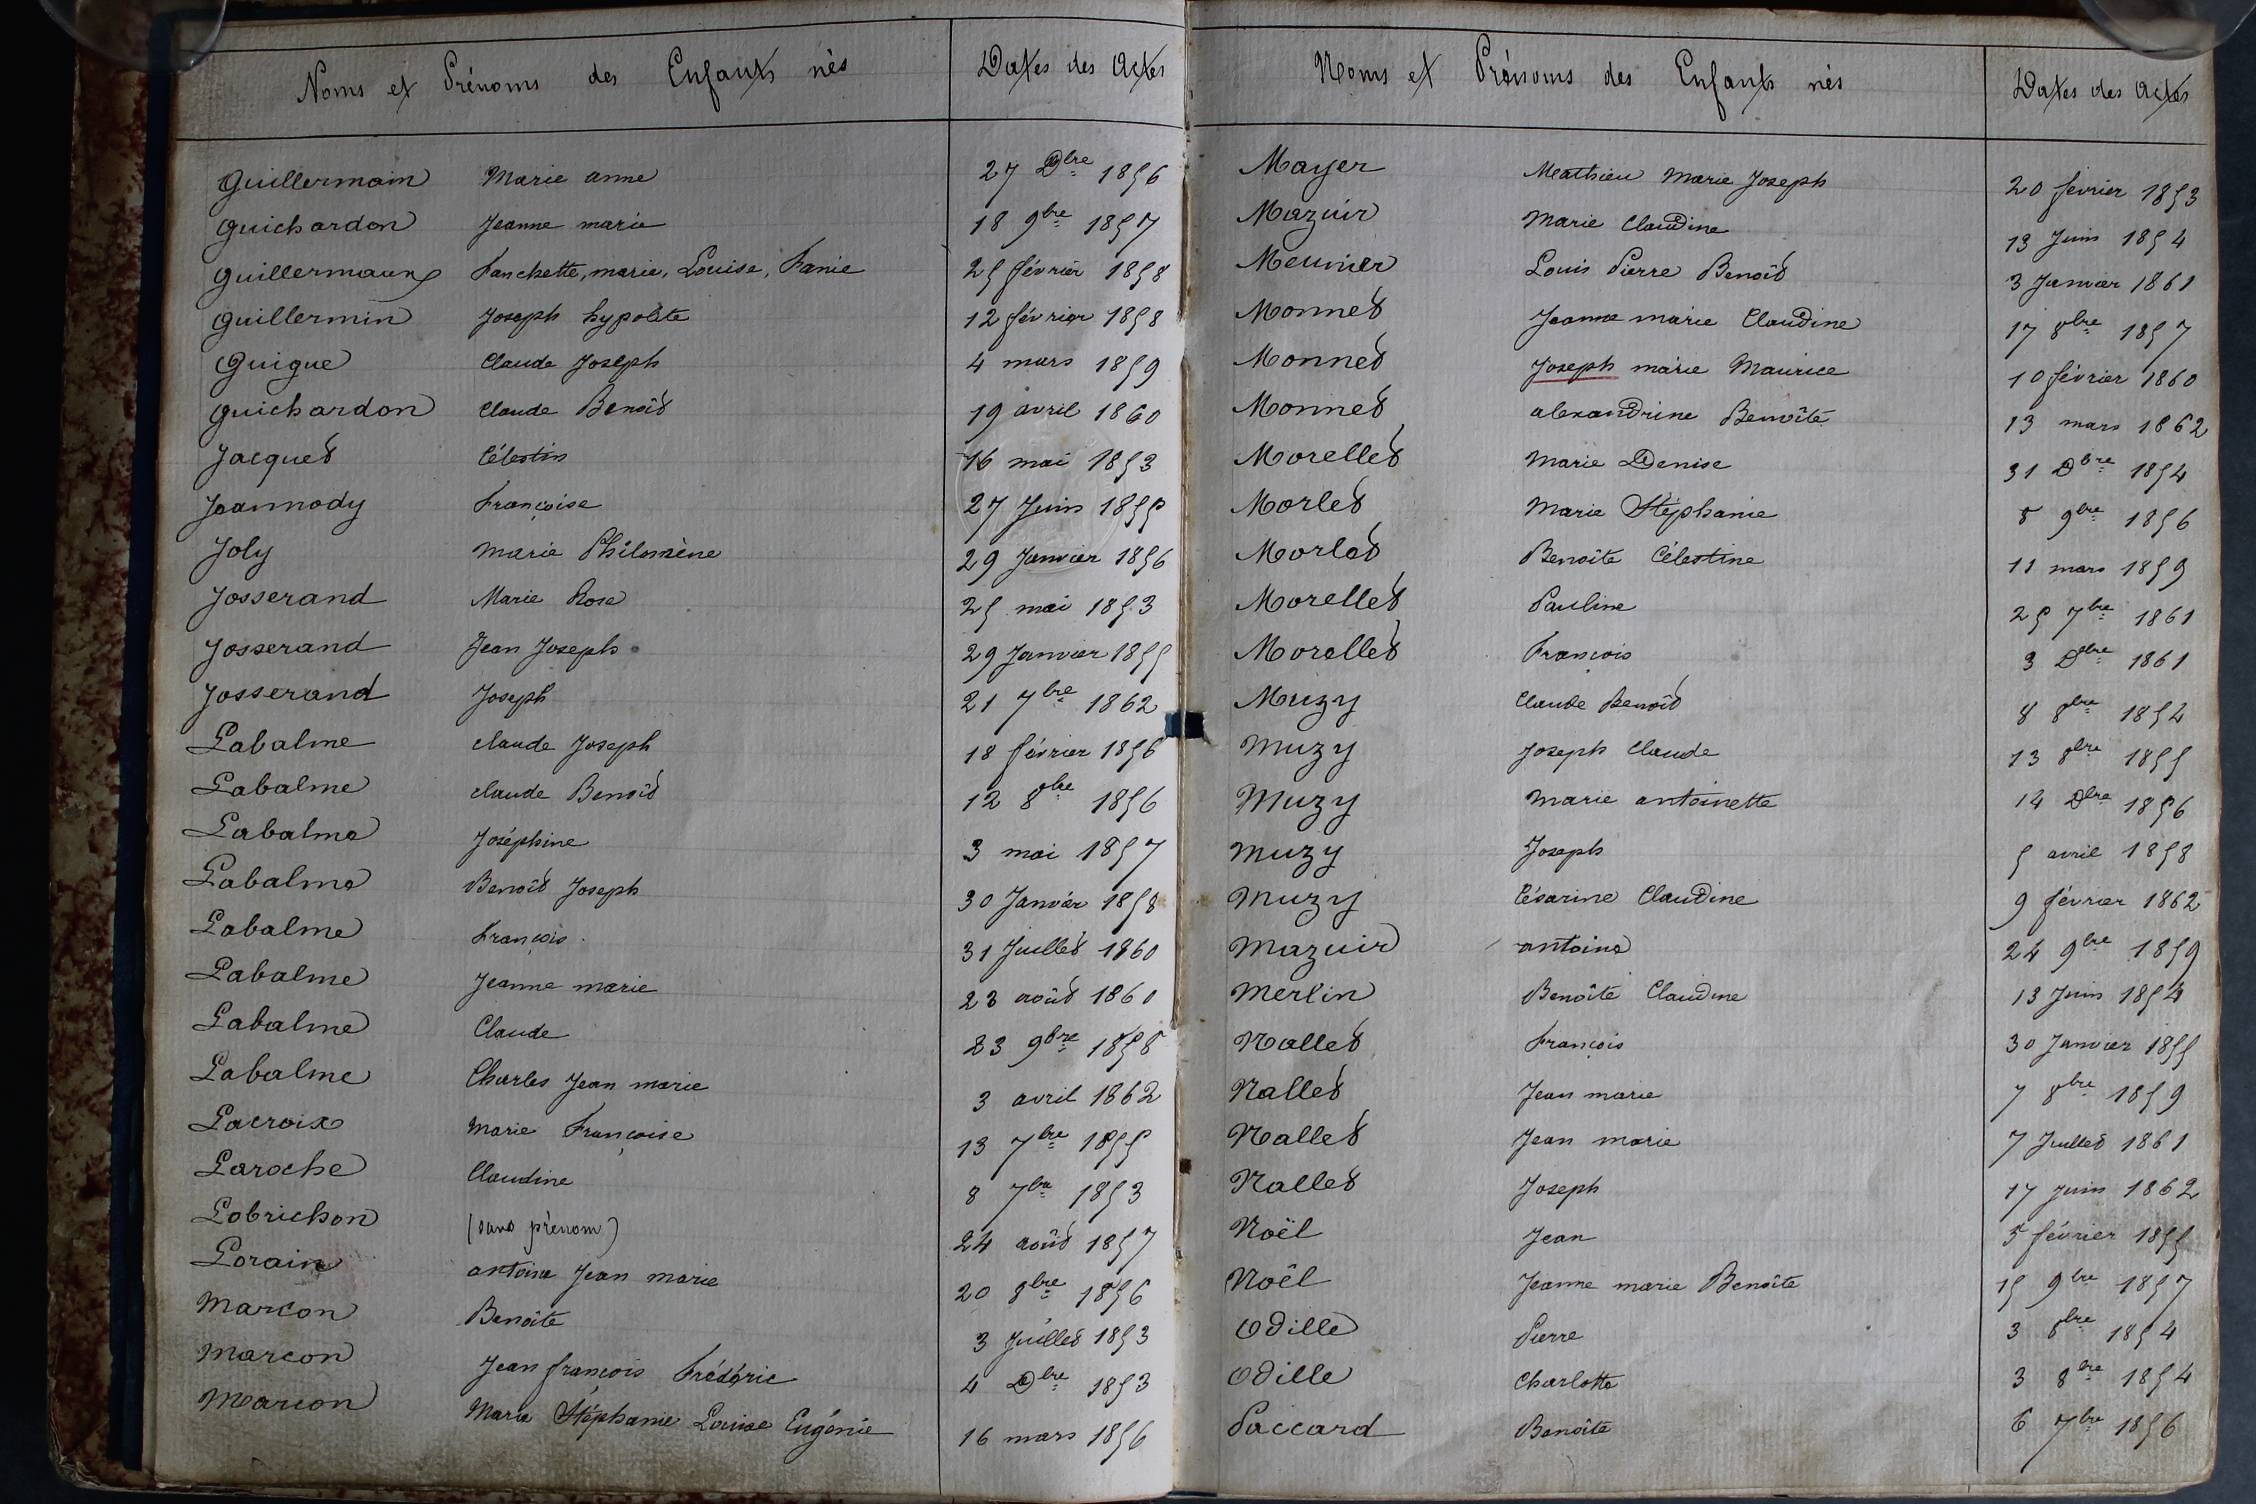 Noms et Prénoms des Enfants nés Dates des Actes
Guillermain Marie anne 27 Dbre 1856
Guichardon Jeanne marie 18 9bre 1857
Guillermaux Fanchette, marie, Louise, Fanie 25 février 1858
Guillermin Joseph hypolite 12 février 1858
Guigue Claude Joseph 4 mars 1859
Guichardon Claude Benoît 19 avril 1860
Jacquet Célestin 16 mai 1853
Joannody Françoise 27 Juin 1855
Joly Marie Philomène 29 Janvier 1856
Josserand Marie Rose 25 mai 1853
Josserand Jean Joseph 29 Janvier 1855
Josserand Joseph 21 7bre 1862
Labalme claude Joseph 18 février 1856
Labalme claude Benoît 12 8bre 1856
Labalme Joséphine 3 mai 1857
Labalme Benoît Joseph 30 Janvier 1858
Labalme François 31 Juillet 1860
Labalme Jeanne marie 23 août 1860
Labalme Claude 23 9bre 1858
Labalme Charles Jean marie 3 avril 1862
Lacroix Marie Françoise 13 7bre 1855
Laroche Claudine 8 7bre 1853
Lobrichon (sans prénom) 24 août 1857
Lorain antoine Jean marie 20 8bre 1856
Marcon Benoîte 3 Juillet 1853
Marcon Jean françois Frédéric 4 Dbre 1853
Marcon Marie Stéphanie Louise Eugénie 16 mars 1856
Noms et Prénoms des Enfants nés Dates des Actes
Mayer Mathieu Marie Joseph 20 février 1853
Mazuir Marie Claudine 13 Juin 1854
Meunier Louis Pierre Benoît 3 Janvier 1861
Monnet Jeanne marie Claudine 17 8bre 1857
Monnet Joseph marie Maurice 10 février 1860
Monnet alexandrine Benoîte 13 mars 1862
Morellet Marie Denise 31 Dbre 1854
Morlet Marie Stéphanie 8 9bre 1856
Morlot Benoîte Célestine 11 mars 1859
Morellet Pauline 25 7bre 1861
Morellet François 3 Dbre 1861
Muzy Claude Benoît 8 8bre 1854
Muzy Joseph Claude 13 8bre 1855
Muzy Marie antoinette 14 Dbre 1856
Muzy Joseph 5 avril 1858
Muzy Césarine Claudine 9 février 1862
Mazuir antoine 24 9bre 1859
Merlin Benoîte Claudine 13 Juin 1854
Nallet François 30 Janvier 1855
Nallet Jean marie 7 8bre 1859
Nallet Jean marie 7 Juillet 1861
Nallet Joseph 17 Juin 1862
Noël Jean 5 février 1855
Noël Jeanne marie Benoîte 15 9bre 1857
Odille Pierre 3 8bre 1854
Odille Charlotte 3 8bre 1854
Paccard Benoîte 6 7bre 1856